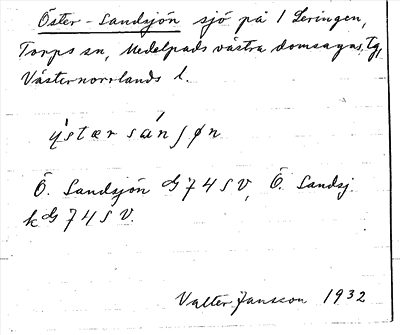 Öster-Sandsjön sjö på / Leringen,
Torps sn, Medelpads västra domsagas tg,
Västernorrlands l.
ýstær sánʃøn
Ö. Sandsjön G 74 SV, Ö. Sandsj.
k G 74 SV.
Valter Jansson 1932